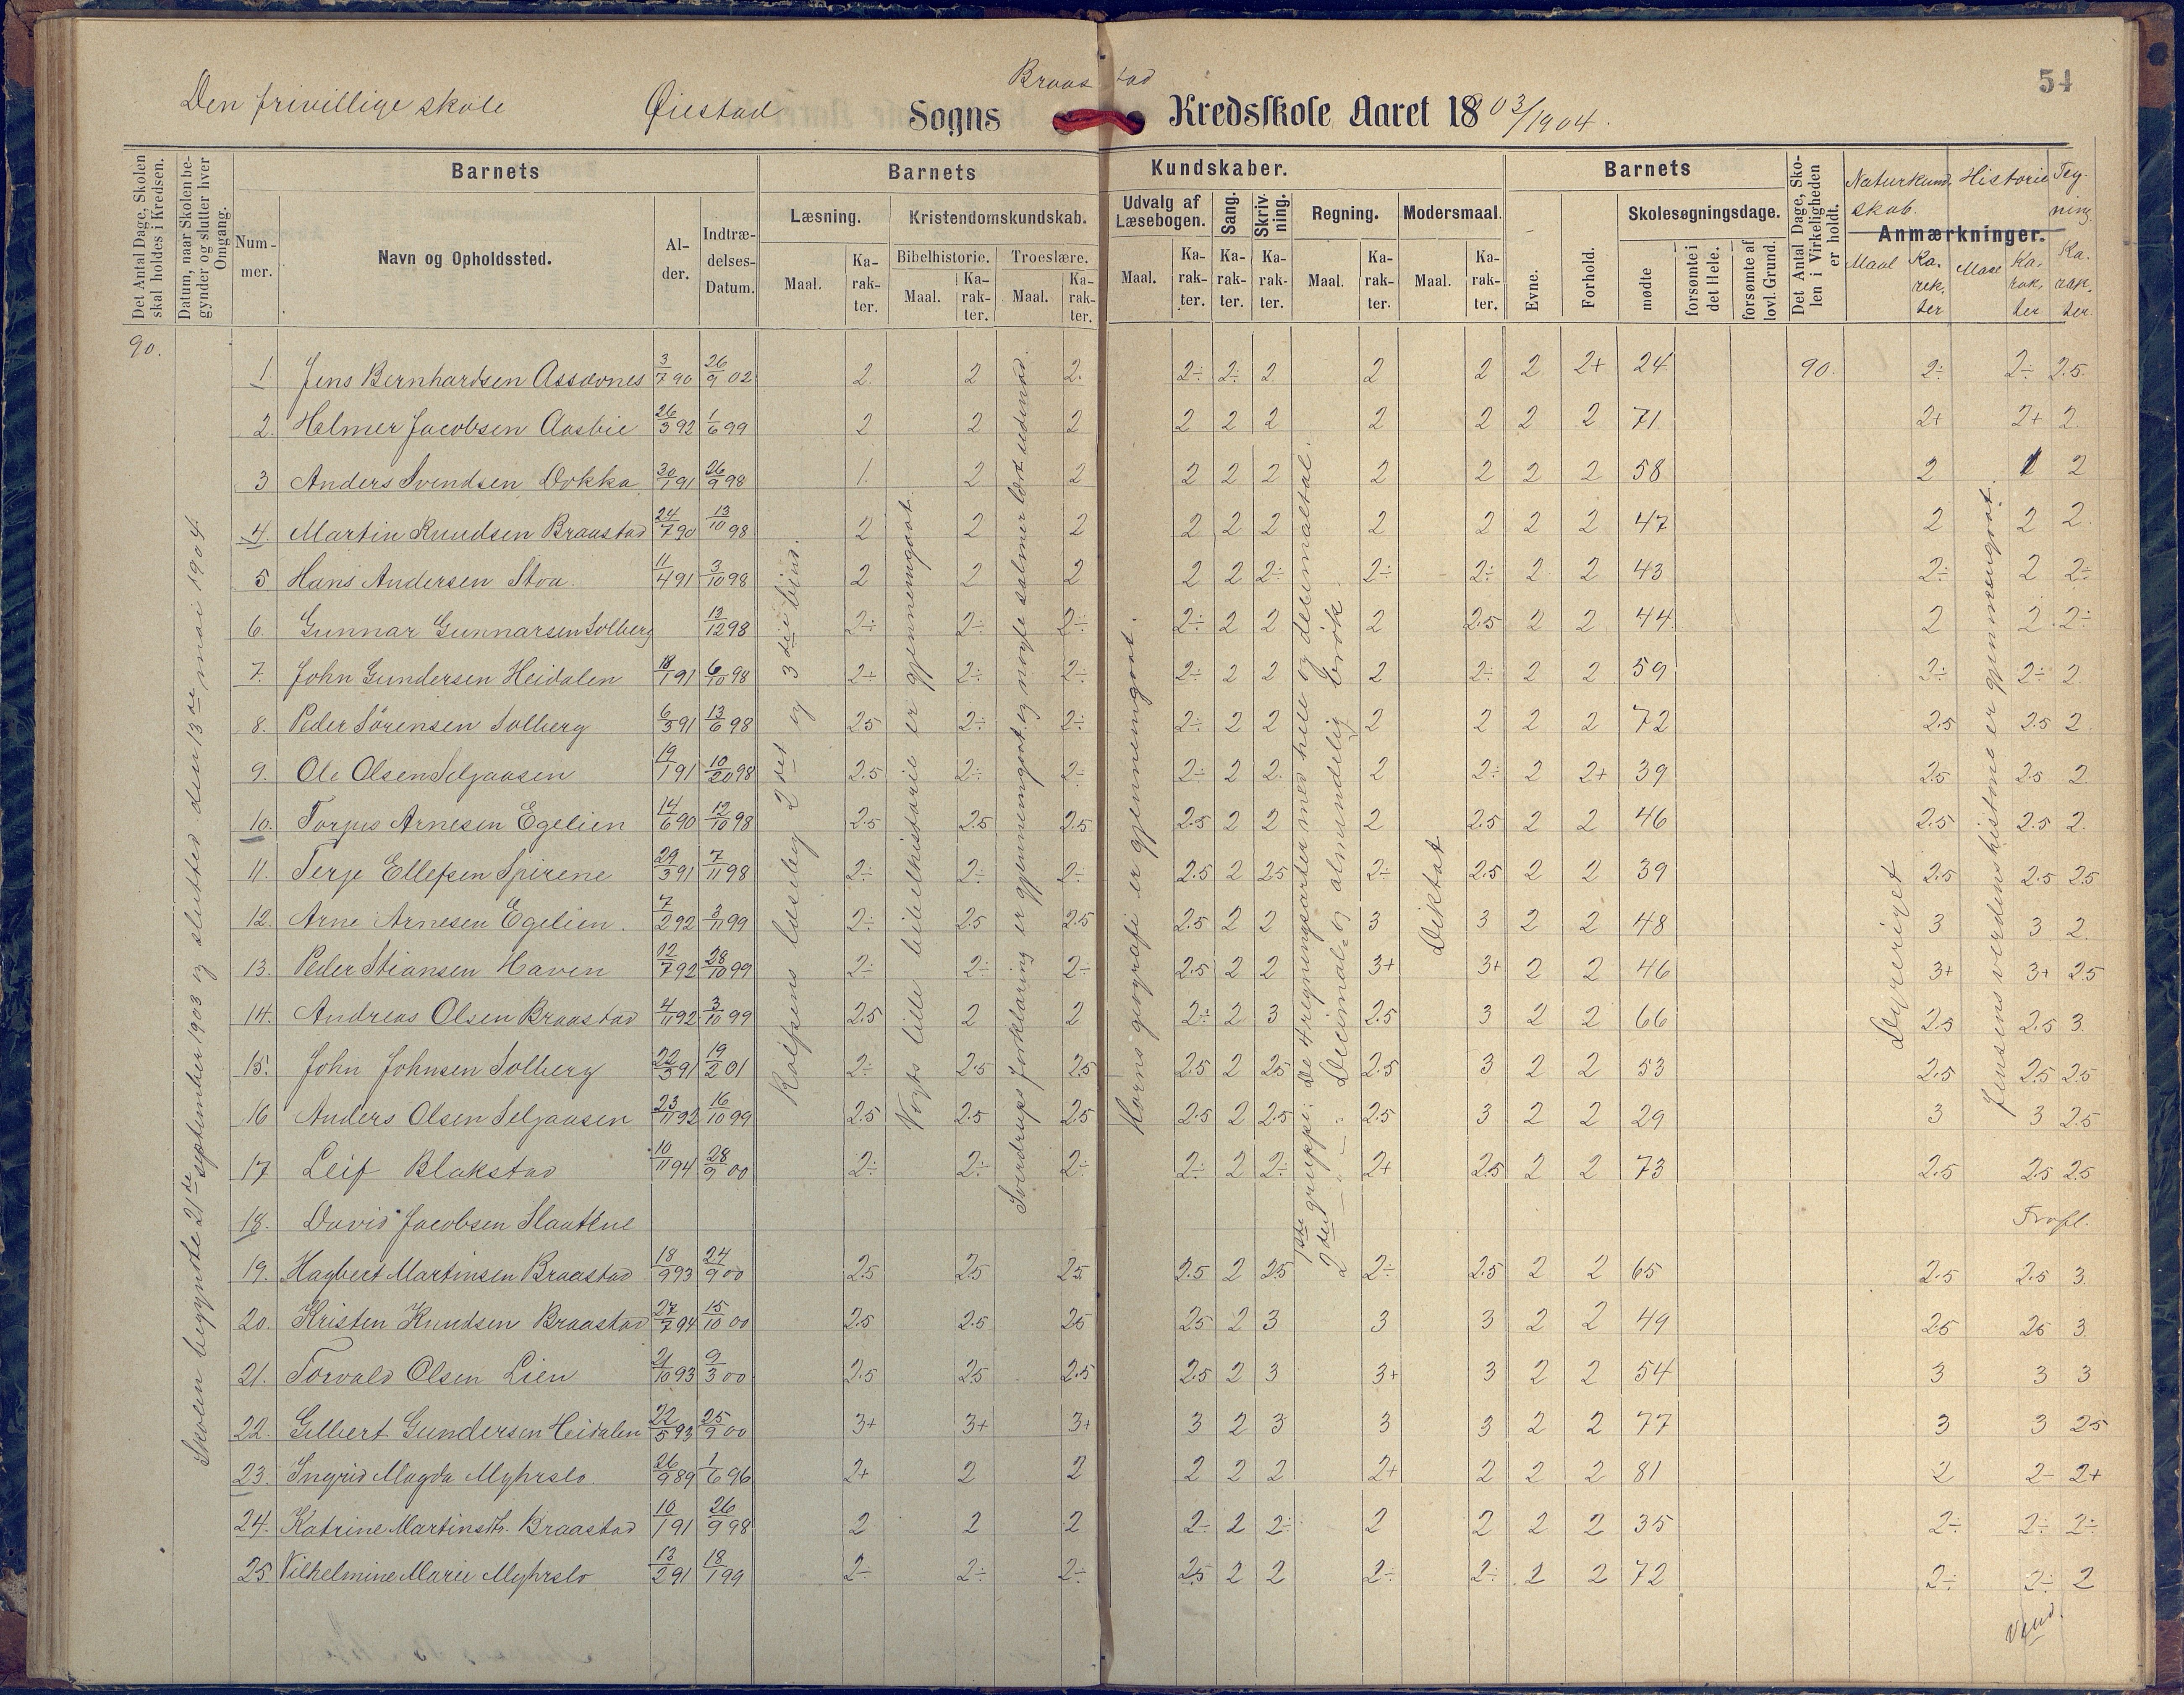 54
Braastad
Den frivillige skole Øiestad Sogns Kredsskole Aaret 1803/1904.
Det Antal Dage, Skolen skal holdes i Kredsen.
Datum, naar Skolen begynder og slutter hver Omgang.
Barnets
Nummer.
Navn og Opholdssted.
Alder.
Indtrædelses-Datum.
Barnets Kundskaber.
Læsning.
Maal.
Karakter.
Kristendomskundskab.
Bibelhistorie.
Maal.
Karakter.
Troeslære.
Maal.
Karakter.
Udvalg af Læsebogen.
Maal.
Karakter.
Sang.
Karakter.
Skrivning.
Karakter.
Regning.
Maal.
Karakter.
Modersmaal.
Maal.
Karakter.
Barnets
Evne.
Forhold.
Skolesøgningsdage.
mødte
forsømte i det Hele.
forsømte af lovl. Grund.
Det Antal Dage, Skolen i Virkeligheden er holdt.
Anmærkninger.
Naturkundskab.
Maal
Karakter
Historie
Maal
Karakter
Tegning
Karakter
90.
Skolen begyndte 21de september 1903 og slutted den 13de mai 1904
Rolfsens læsebog 2det og 3die bind.
Vogts lille bibelhistorie er gjennemgaat.
Sverdrups forklaring er gjennemgaat og nogle salmer lært udenad.
Horns geografi er gjennemgaat.
1ste gruppe: De 4 regningsarter med hele og decimaltal.
2den — " — : Decimal- og almindelig brøk.
Diktat
Dyreriget
Jensens verdenshistorie er gjennemgaat.
1. Jens Bernhardsen Assævnes 3/7 90 26/9 02 2. 2 2. 2÷ 2÷ 2 2 2 2 2+ 24 90. 2÷ 2÷ 2.5
2. Helmer Jacobsen Aasbie 26/3 92 1/6 99 2 2 2 2 2 2 2 2 2 2 71 2+ 2+ 2
3 Anders Svendsen Dokka 30/1 91 26/9 98 1. 2 2 2 2 2 2 2 2 2 58 2 1 2
4. Martin Knudsen Braastad 24/7 90 13/10 98 2 2 2 2 2 2 2 2 2 2 47 2 2 2.
5 Hans Andersen Stoa. 11/4 91 3/10 98 2 2 2 2 2 2÷ 2÷ 2÷ 2 2 43 2÷ 2 2÷
6. Gunnar Gunnarsen Solberg 13/12 98 2÷ 2÷ 2÷ 2÷ 2 2 2 2.5 2 2 44 2 2 2÷
7. John Gundersen Heidalen 18/1 91 6/10 98 2÷ 2÷ 2÷ 2÷ 2 2 2 2÷ 2 2 59 2÷ 2÷ 2
8. Peder Sörensen Solberg 6/3 91 13/6 98 2.5 2÷ 2÷ 2÷ 2 2 2 2 2 2 72 2.5 2.5 2
9. Ole Olsen Seljaasen 19/1 91 10/20 98 2.5 2÷ 2÷ 2÷ 2 2. 2 2÷ 2 2+ 39 2.5 2.5 2
10. Torjus Arnesen Egelien 14/6 90 12/10 98 2.5 2.5 2.5 2.5 2 2 2 2.5 2 2 46 2.5 2.5 2.
11. Terje Ellefsen Spirene 29/3 91 7/11 98 2÷ 2÷ 2÷ 2.5 2 2.5 2÷ 2.5 2 2 39 2.5 2.5 2.5
12. Arne Arnesen Egelien. 7/2 92 3/11 99 2÷ 2.5 2.5 2.5 2 2 3 3 2 2 48 3 3 2.
13. Peder Stiansen Haven 12/7 92 28/10 99 2÷ 2÷ 2÷ 2.5 2 2 3+ 3+ 2 2 46 3+ 3+ 2.5
14. Andreas Olsen Braastad 4/11 92 3/10 99 2.5 2 2 2÷ 2 3 2.5 3 2 2 66 2.5 2.5 3.
15. John Johnsen Solberg 22/3 91 19/2 01 2÷ 2.5 2.5 2.5 2 2.5 2.5 3 2 2 53 2.5 2.5 2.5
16 Anders Olsen Seljaasen 23/11 92 16/10 99 2.5 2.5 2.5 2.5 2 2.5 2.5 3 2 2 29 3 3 2.5
17 Leif Blakstad 10/11 94 28/9 00 2÷ 2÷ 2÷ 2÷ 2 2÷ 2+ 2.5 2 2 73 2.5 2.5 2.5
18. David Jacobsen Slaattene
19. Hagbert Martinsen Braastad 18/9 93 24/9 00 2.5 2.5 2.5 2.5 2 2.5 2÷ 2.5 2 2 65 2.5 2.5 3.
20. Kristen Knudsen Braastad 27/7 94 15/10 00 2.5 2.5 2.5 2.5 2 3 3 3 2 2 49 2.5 2.5 3.
21. Torvald Olsen Lien 21/10 93 9/3 00 2.5 2.5 2.5 2.5 2 3 3+ 3 2 2 54 3 3 3
22. Gilbert Gundersen Heidalen 22/5 93 25/9 00 3+ 3+ 3+ 3 2 3 3 3 2 2 77 3 3 2.5
23. Ingrid Magda Myhrslo 26/9 89 1/6 96 2+ 2 2 2 2 2 2+ 2 2 2 81 2 2- 2+
24. Katrine Martinsdtr. Braastad 10/1 91 26/9 98 2 2 2 2÷ 2 2÷ 2 2 2 2 35 2÷ 2÷ 2÷
25. Vilhelmine Marie Myhrslo 13/2 91 18/1 99 2÷ 2÷ 2÷ 2.5 2 2 2÷ 2÷ 2 2 72 2÷ 2÷ 2
Vend